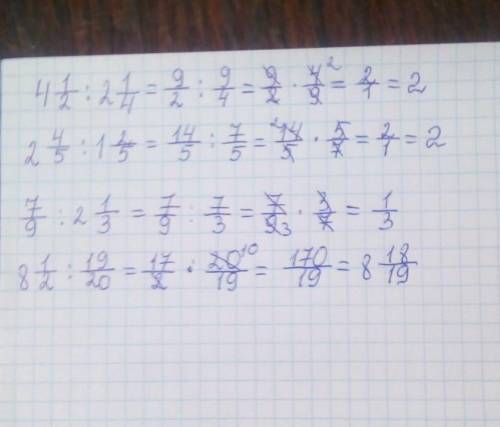 4 1/2 : 2 1/4 = 9/2 : 9/4 = 9/2 · 4/9 2 = 2/1 = 2
2 4/5 : 1 2/5 = 14/5 : 7/5 = 2 14/5 · 5/7 = 2/1 = 2
7/9 : 2 1/3 = 7/9 : 7/3 = 7/9 3 · 3/7 = 1/3
8 1/2 : 19/20 = 17/2 · 20/19 10 = 170/19 = 8 18/19